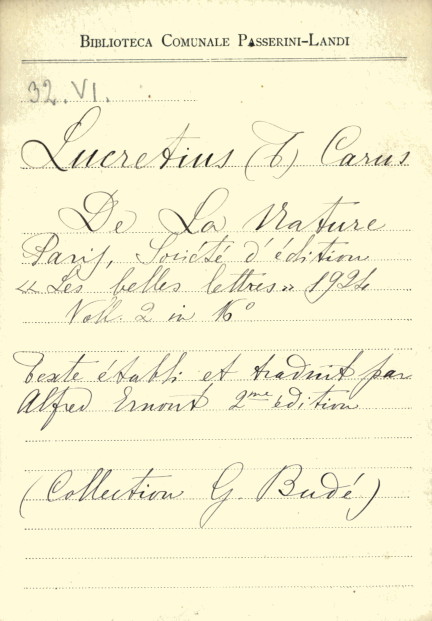 BIBLIOTECA COMUNALE PASSERINI-LANDI
32.VI.
Lucretius (T) Carus
De La Nature
Paris, Société d'édition
« Les belles lettres » 1924
Voll. 2 in 16°
Texte établi et traduit par
Alfred Ernout 2me édition
(Collection G. Budé)